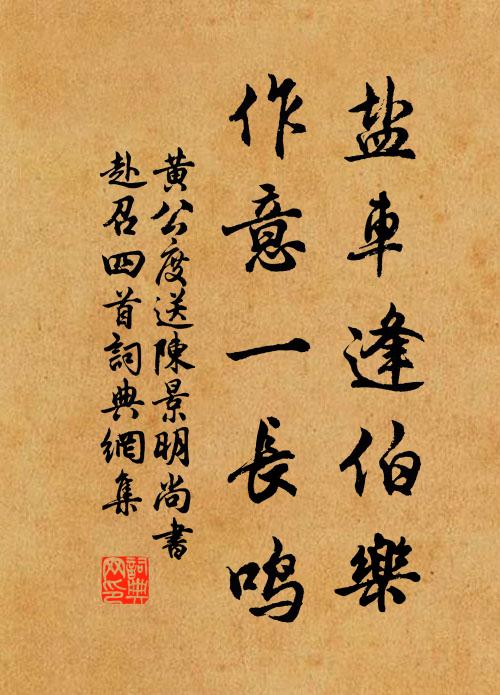 盐車逢伯樂
作意一長鸣
黄公度送陳景明尚書
赴召四首詞典網集
詞典
网印